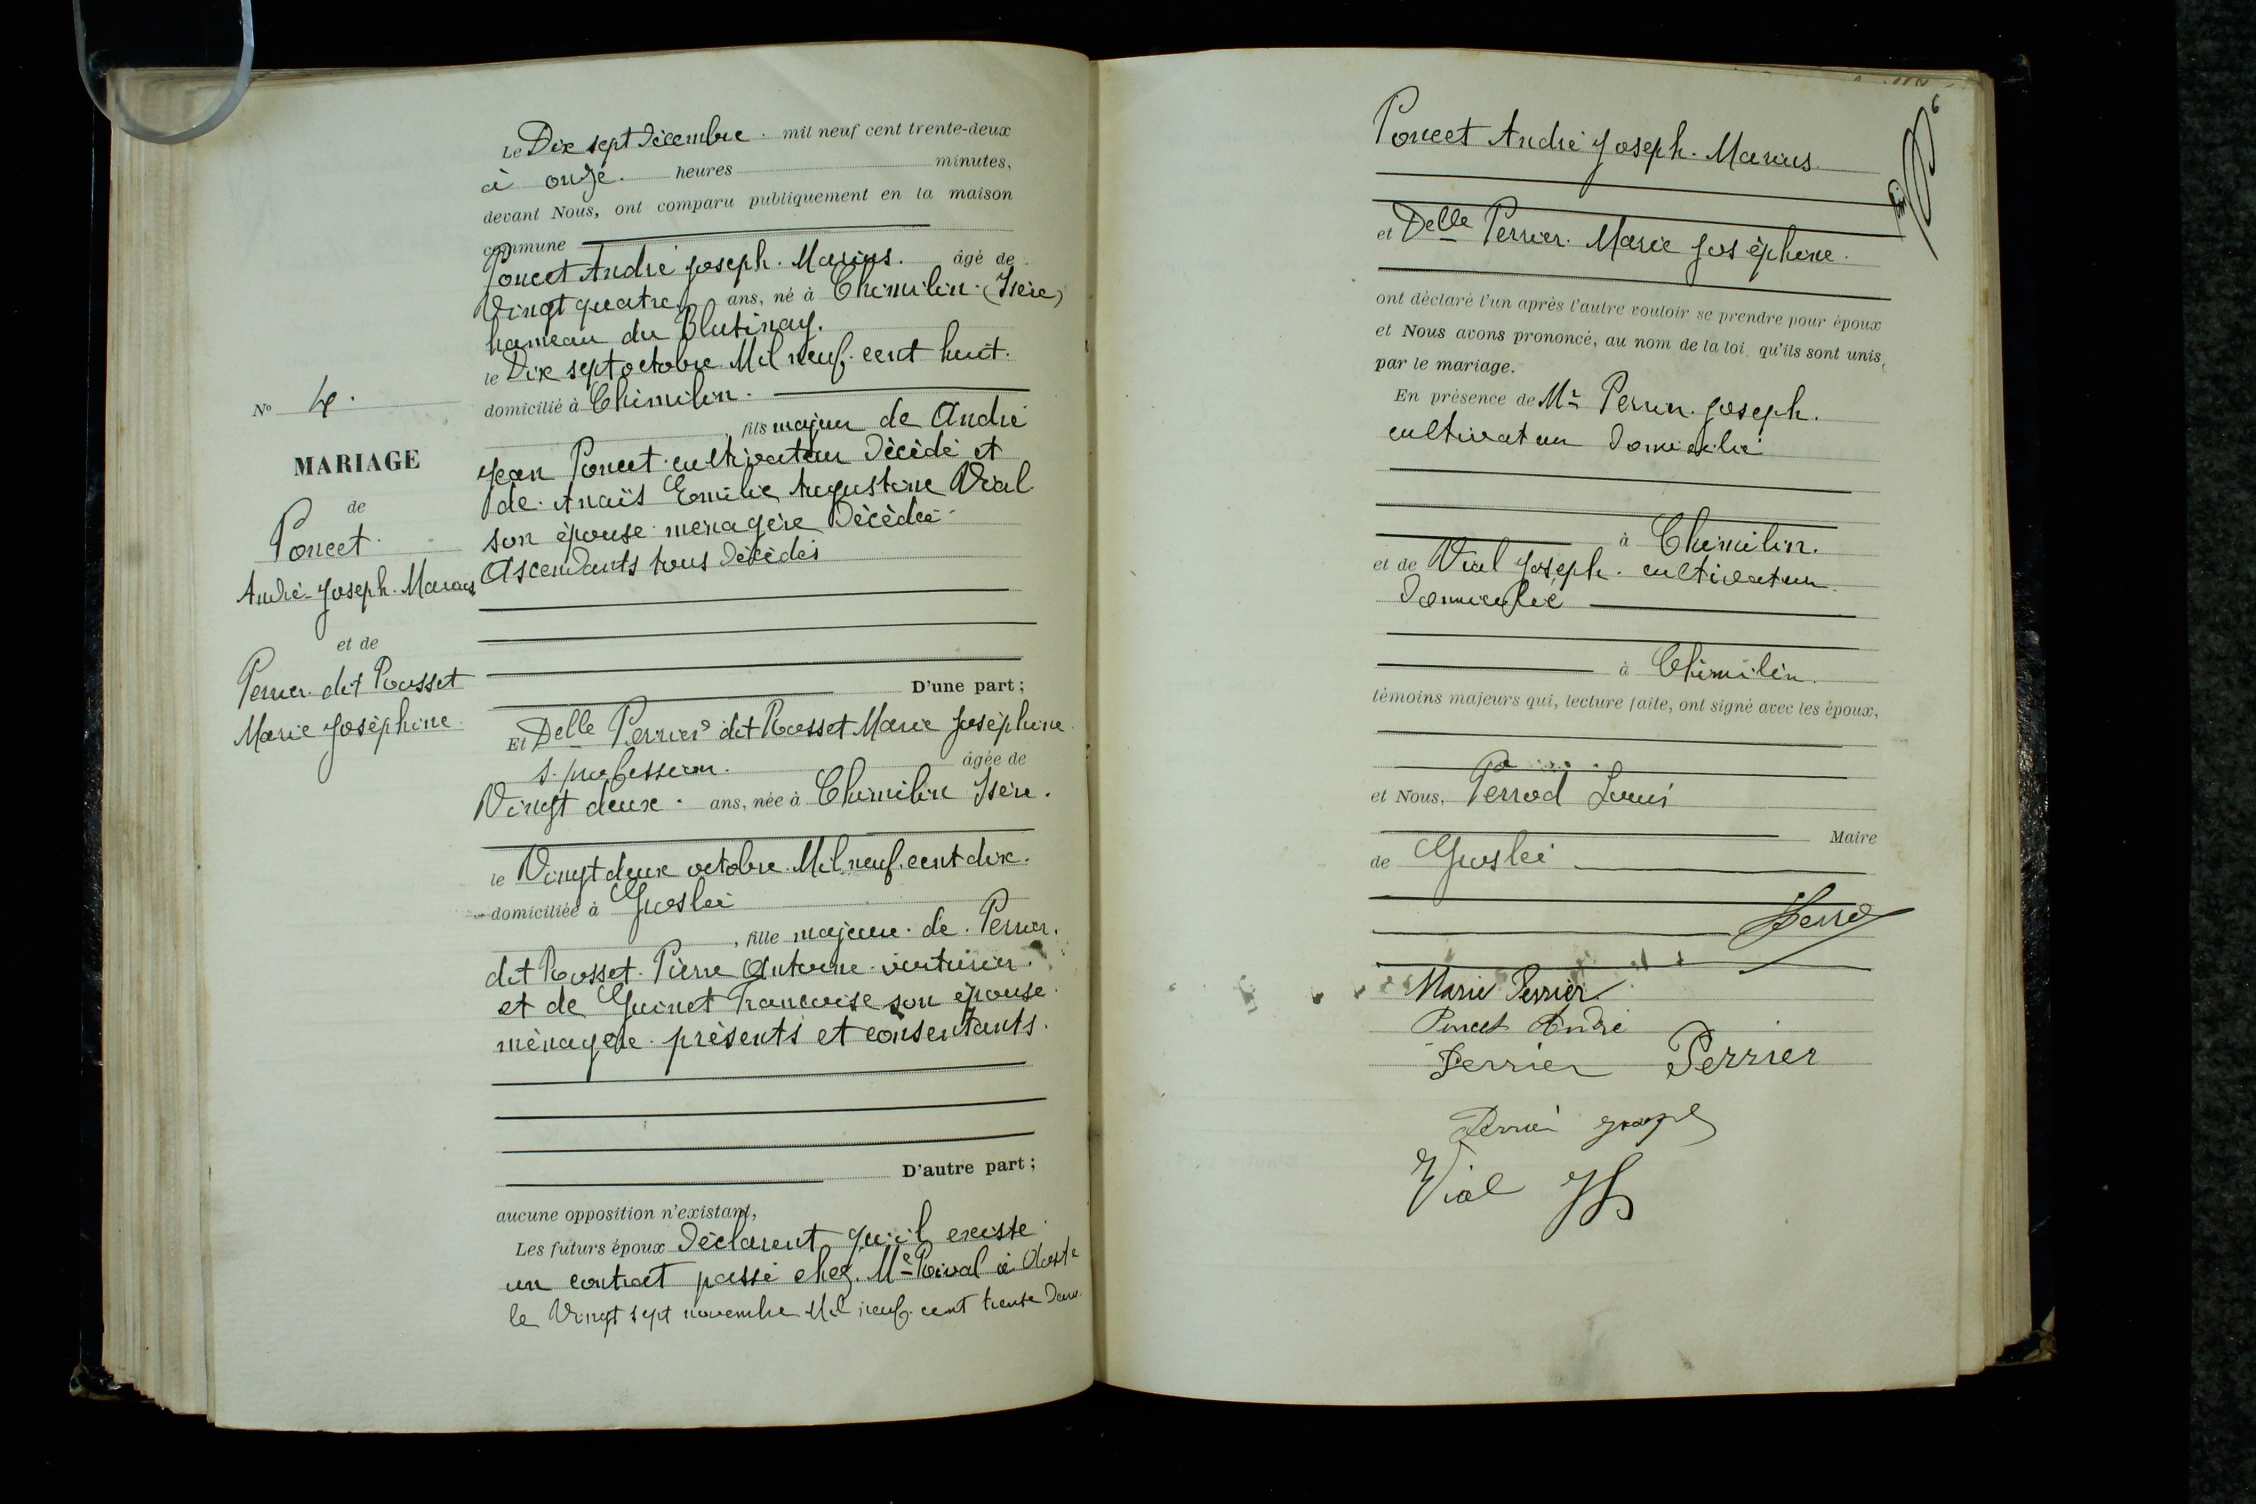 Le Dix sept Décembre. mil neuf cent trente-deux
à onze. heures minutes,
devant Nous, ont comparu publiquement en la maison
commune
Poncet André Joseph. Marius. âgé de
Vingt quatre ans, né à Chimilin. (Isère)
hameau du Blutinay.
le Dix sept octobre Mil neuf. cent huit.
domicilié à Chimilin.
, fils majeur de André
Jean Poncet cultivateur Décédé et
de. Anaïs Emilie Augustine Vial
son épouse ménagère Décédée
Ascendants tous Décédés
D'une part;
Et Delle Perrier dit Rosset Marie Joséphine
s. profession. âgée de
Vingt deux. ans, née à Chimilin Isère.
le Vingt deux octobre. Mil neuf. cent dix.
domiciliée à Granieu
, fille majeure. de. Perrier.
dit Rosset. Pierre Antoine voiturier.
et de Guinet Francoise son épouse.
ménagère. présents et consentants.
D'autre part;
aucune opposition n'existant,
Les futurs époux Déclarent qu'il existe
un contrat passé chez. Me Roival à Aoste
le Vingt sept novembre Mil neuf. cent trente Deux
No 4.
MARIAGE
de
Poncet
André Joseph. Marius
et de
Perrier. dit Rosset
Marie Joséphine
6
Poncet André Joseph. Marius
et Delle Perrier. Marie Joséphine.
ont déclaré l'un après l'autre vouloir se prendre pour époux
et Nous avons prononcé, au nom de la loi, qu'ils sont unis
par le mariage.
En présence de Mr Perrier. Joseph.
cultivateur Domicilié
à Chimilin.
et de Vial Joseph. cultivateur
Domicilié
à Chimilin.
témoins majeurs qui, lecture faite, ont signé avec les époux,
et Nous, Perrod Louis
Maire
de
Marie Perrier
Poncet André
Perrier Perrier
Perrier Joseph
Vial Jh